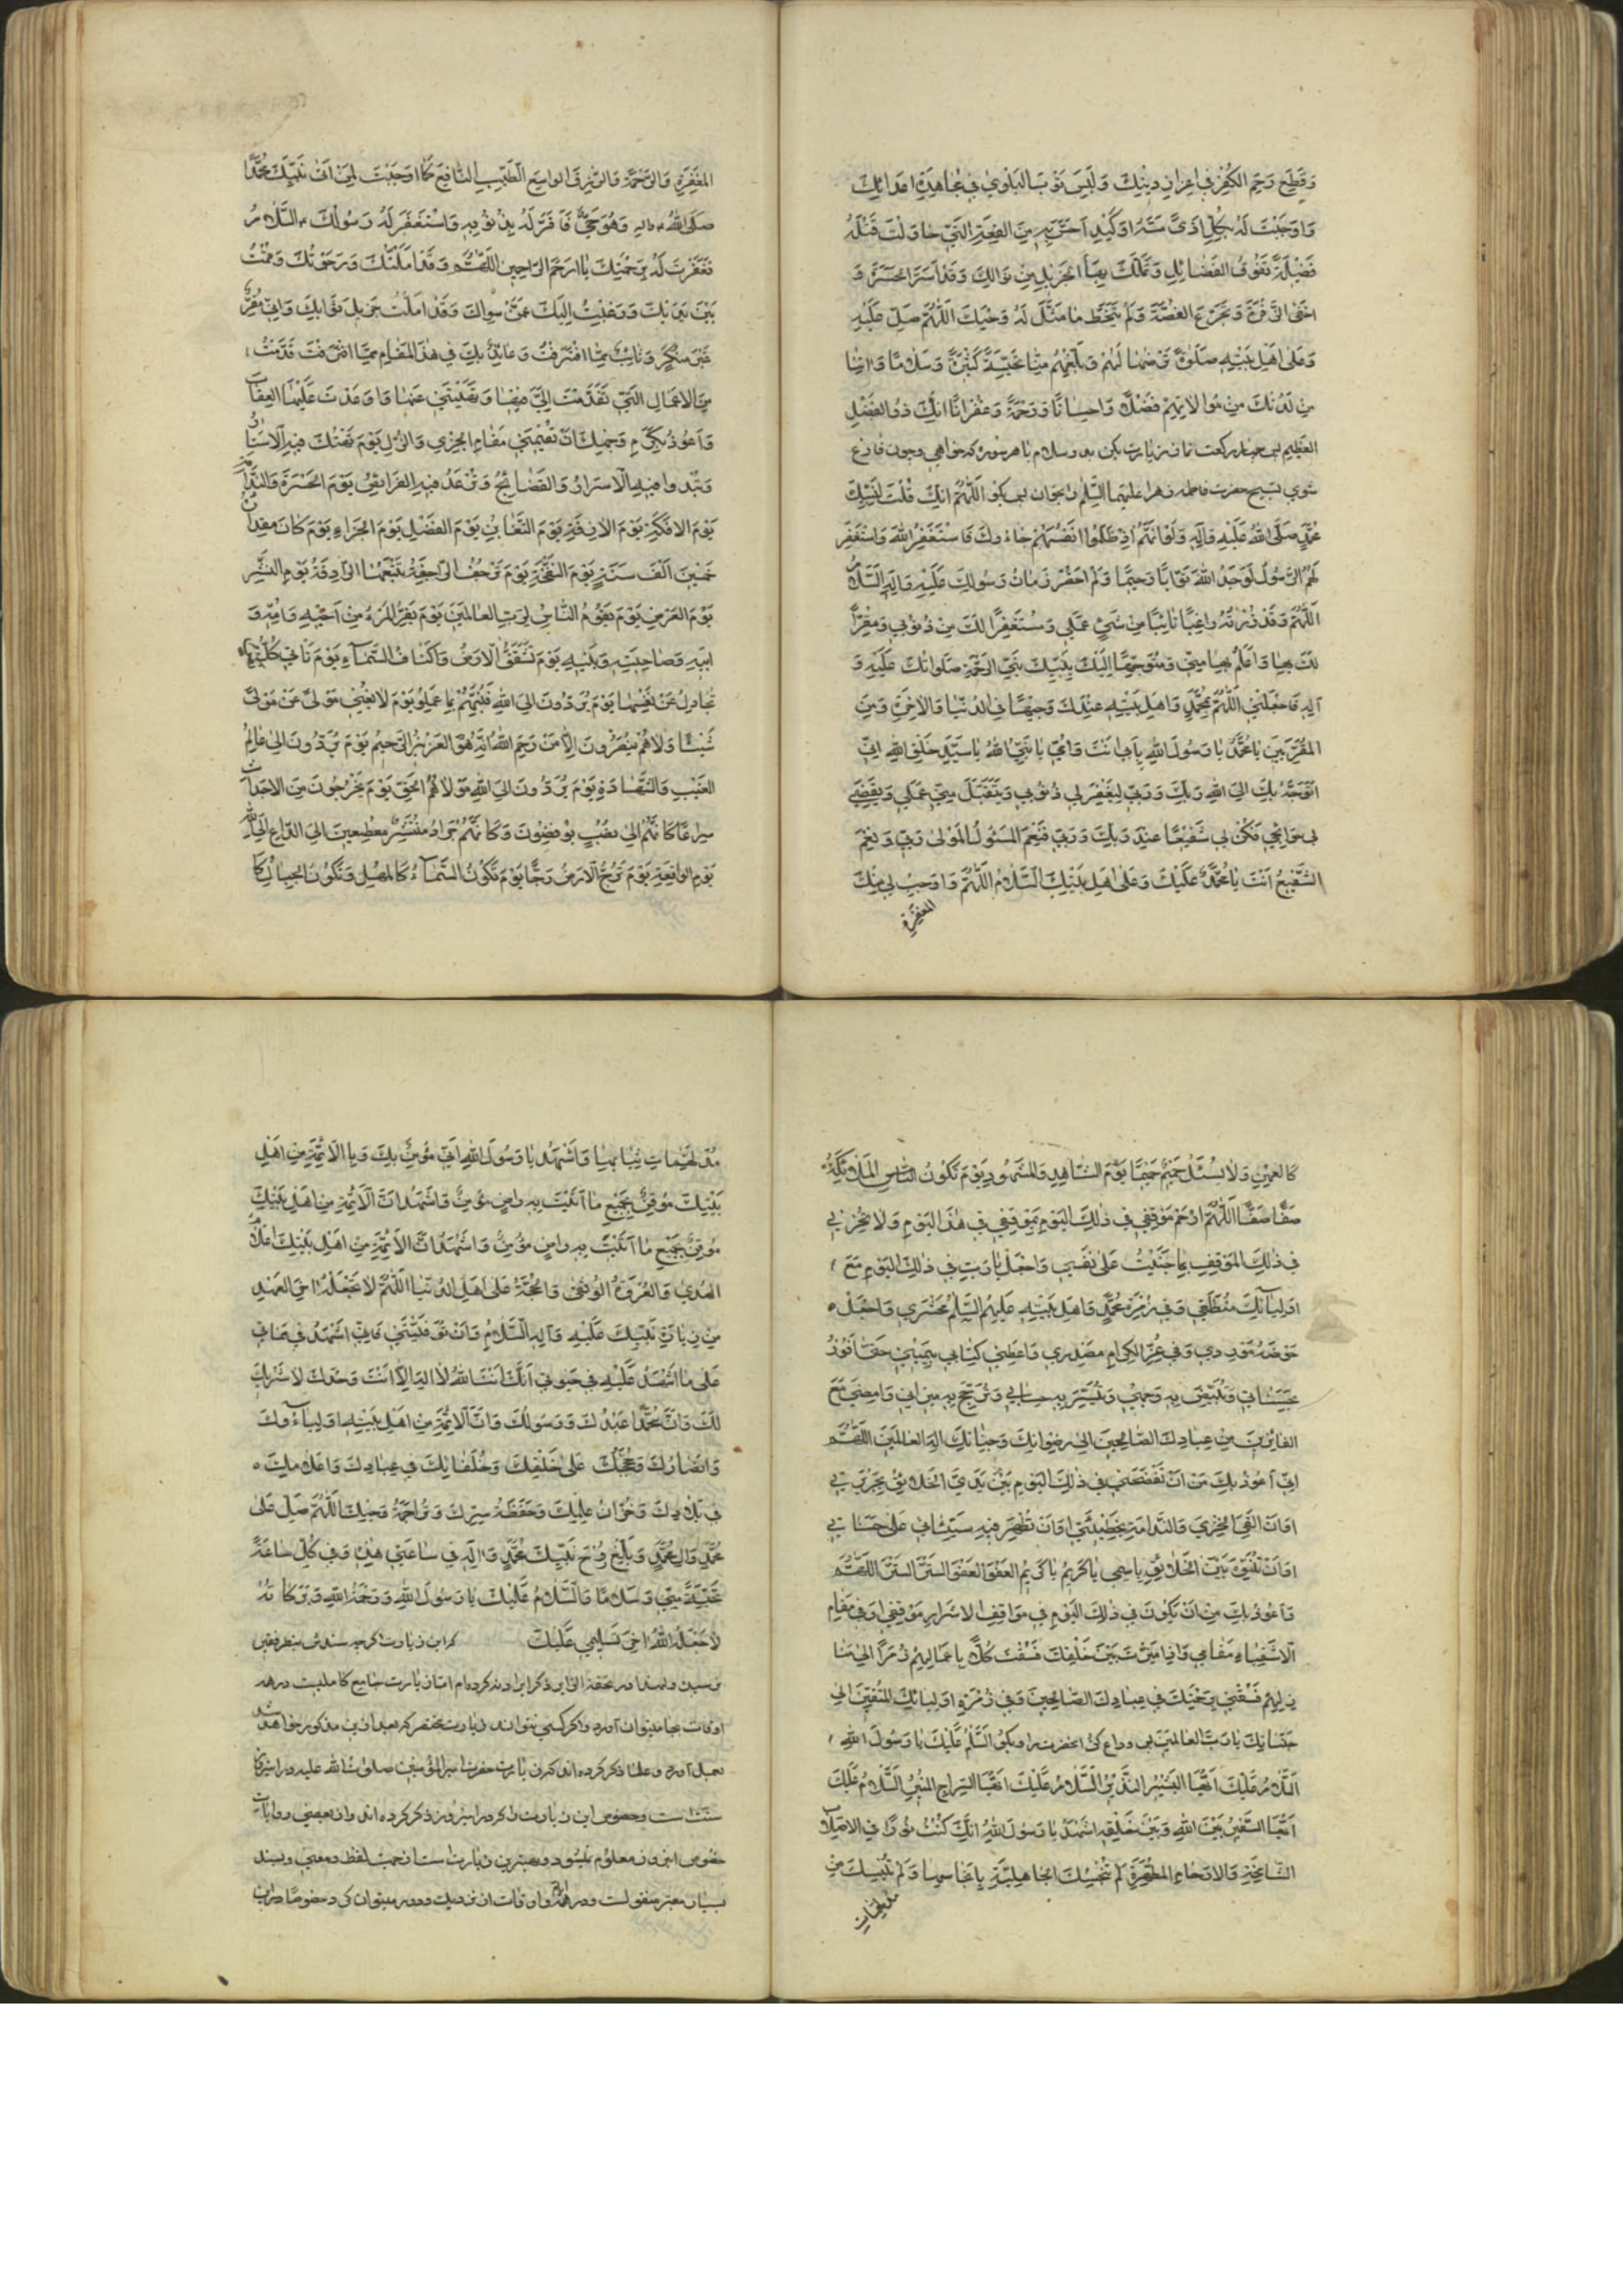 وَقَطِيعِ رَحِمِ الكُفْرِ في اِعْزازِ دِينِكَ وَلَبِسَ ثَوْبَ البَلْوىٰ في مُجاهَدَةِ اَعْدائِكَ
وَاَوْجَبْتَ لَهُ بِكُلِّ اَذىً مَسَّهُ اَوْ كَيْدٍ اَحَسَّ بِهِ مِنَ الفِئَةِ الَّتي حاوَلَتْ قَتْلَهُ
فَضيلَةً تَفُوقُ الفَضائِلَ وَيَمْلِكُ بِهَا الجَزيلَ مِنْ نَوالِكَ وَقَدْ اَسَرَّ الحَسْرَةَ وَ
اَخْفىٰ الزَّفْرَةَ وَتَجَرَّعَ الغُصَّةَ وَلَمْ يَتَخَطَّ ما مَثَّلَ لَهُ وَحْيُكَ اَللّٰهُمَّ صَلِّ عَلَيْهِ
وَعَلىٰ اَهْلِ بَيْتِهِ صَلوٰةً تَرْضٰها لَهُمْ وَبَلِّغْهُمْ مِنّا تَحِيَّةً كَثيرَةً وَسَلامًا وَآتِنا
مِنْ لَدُنْكَ مِنْ مُوالاتِهِمْ فَضْلاً وَاِحْسانًا وَرَحْمَةً وَغُفْرانًا اِنَّكَ ذُو الفَضْلِ
العَظيمِ پس چهار ركعت نماز زيارت بكن بدو سلام با هر سوره كه خواهى وچون فارغ
شوى تسبيح حضرت فاطمه زهرا عليها السّلم را بخوان پس بگو اَللّٰهُمَّ اِنَّكَ قُلْتَ لِنَبِيِّكَ
مُحَمَّدٍ صَلَّى اللهُ عَلَيْهِ وَآلِهِ وَلَوْ اَنَّهُمْ اِذْ ظَلَمُوا اَنْفُسَهُمْ جاءُوكَ فَاسْتَغْفَرُوا اللهَ وَاسْتَغْفَرَ
لَهُمُ الرَّسُولُ لَوَجَدُوا اللهَ تَوّابًا رَحيمًا وَلَمْ اَحْضُرْ زَمانَ رَسُولِكَ عَلَيْهِ وَآلِهِ السَّلامُ
اَللّٰهُمَّ وَقَدْ زُرْتُهُ راغِبًا تائِبًا مِنْ سَيِّئِ عَمَلي وَمُسْتَغْفِرًا لَكَ مِنْ ذُنُوبي وَمُقِرًّا
لَكَ بِها وَاَنْتَ اَعْلَمُ بِها مِنّي وَمُتَوَجِّهًا اِلَيْكَ بِنَبِيِّكَ نَبِيِّ الرَّحْمَةِ صَلَواتُكَ عَلَيْهِ وَ
آلِهِ فَاجْعَلْنِي اَللّٰهُمَّ بِمُحَمَّدٍ وَاَهْلِ بَيْتِهِ عِنْدَكَ وَجيهًا في الدُّنْيا وَالآخِرَةِ وَمِنَ
المُقَرَّبينَ يا مُحَمَّدُ يا رَسُولَ اللهِ بِاَبي اَنْتَ وَاُمّي يا نَبِيَّ اللهِ يا سَيِّدَ خَلْقِ اللهِ اِنّي
اَتَوَجَّهُ بِكَ اِلَى اللهِ رَبِّكَ وَرَبّي لِيَغْفِرَ لي ذُنُوبي وَيَتَقَبَّلَ مِنّي عَمَلي وَيَقْضِيَ
لي حَوائِجي فَكُنْ لي شَفيعًا عِنْدَ رَبِّكَ وَرَبّي فَنِعْمَ المَسْئُولُ المَوْلىٰ رَبّي وَنِعْمَ
الشَّفيعُ اَنْتَ يا مُحَمَّدُ عَلَيْكَ وَعَلىٰ اَهْلِ بَيْتِكَ السَّلامُ اَللّٰهُمَّ وَاَوْجِبْ لي مِنْكَ
المغفرة
المَغْفِرَةَ وَالرَّحْمَةَ وَالرِّزْقَ الواسِعَ الطَّيِّبَ النّافِعَ كَما اَوْجَبْتَ لِمَنْ اَتىٰ نَبِيَّكَ مُحَمَّدًا
صَلَّى اللهُ عليه وآله وَهُوَ حَيٌّ فَاَقَرَّ لَهُ بِذُنُوبِهِ وَاسْتَغْفَرَ لَهُ رَسُولُكَ عليه السَّلامُ
فَغَفَرْتَ لَهُ بِرَحْمَتِكَ يا اَرْحَمَ الرّاحِمينَ اَللّٰهُمَّ وَقَدْ اَمَّلْتُكَ وَرَجَوْتُكَ وَقُمْتُ
بَيْنَ يَدَيْكَ وَرَغِبْتُ اِلَيْكَ عَمَّنْ سِواكَ وَقَدْ اَمَّلْتُ جَزيلَ ثَوابِكَ وَاِنّي مُقِرٌّ
غَيْرُ مُنْكِرٍ وَتائِبٌ مِمَّا اقْتَرَفْتُ وَعائِذٌ بِكَ في هٰذَا المَقامِ مِمّا قَدَّمْتُ
مِنَ الاَعْمالِ الَّتي تَقَدَّمْتَ اِلَيَّ فيها وَنَهَيْتَني عَنْها وَاَوْعَدْتَ عَلَيْهَا العِقابَ
وَاَعُوذُ بِكَرَمِ وَجْهِكَ اَنْ تُقيمَني مَقامَ الخِزْيِ وَالذُّلِّ يَوْمَ تُهْتَكُ فيهِ الاَسْتارُ
وَتَبْدُو فيهِ الاَسْرارُ وَالفَضائِحُ وَتَرْعَدُ فيهِ الفَرائِصُ يَوْمَ الحَسْرَةِ وَالنَّدامَةِ
يَوْمَ الافِكَةِ يَوْمَ الآزِفَةِ يَوْمَ التَّغابُنِ يَوْمَ الفَصْلِ يَوْمَ الجَزاءِ يَوْمَ كانَ مِقْدارُهُ
خَمْسينَ اَلْفَ سَنَةٍ يَوْمَ النَّفْخَةِ يَوْمَ تَرْجُفُ الرّاجِفَةُ تَتْبَعُهَا الرّادِفَةُ يَوْمَ النَّشْرِ
يَوْمَ العَرْضِ يَوْمَ يَقُومُ النّاسُ لِرَبِّ العالَمينَ يَوْمَ يَفِرُّ المَرْءُ مِنْ اَخيهِ وَاُمِّهِ وَ
اَبيهِ وَصاحِبَتِهِ وَبَنيهِ يَوْمَ تَشَقَّقُ الاَرْضُ وَاَكْنافُ السَّماءِ يَوْمَ تَأتي كُلُّ نَفْسٍ
تُجادِلُ عَنْ نَفْسِها يَوْمَ يُرَدُّونَ اِلَى اللهِ فَيُنَبِّئُهُمْ بِما عَمِلُوا يَوْمَ لا يُغْني مَوْلىً عَنْ مَوْلىً
شَيْئًا وَلا هُمْ يُنْصَرُونَ اِلّا مَنْ رَحِمَ اللهُ اِنَّهُ هُوَ العَزيزُ الرَّحيمُ يَوْمَ يُرَدُّونَ اِلىٰ عالِمِ
الغَيْبِ وَالشَّهادَةِ يَوْمَ يُرَدُّونَ اِلَى اللهِ مَوْلاهُمُ الحَقِّ يَوْمَ يَخْرُجُونَ مِنَ الاَجْداثِ
سِراعًا كَاَنَّهُمْ اِلىٰ نُصُبٍ يُوفِضُونَ وَكَاَنَّهُمْ جَرادٌ مُنْتَشِرٌ مُهْطِعينَ اِلَى الدّاعِ اِلَى اللهِ
يَوْمَ الواقِعَةِ يَوْمَ تُرَجُّ الاَرْضُ رَجًّا يَوْمَ تَكُونُ السَّماءُ كَالمُهْلِ وَتَكُونُ الجِبالُ كَا
كَالعِهْنِ وَلا يُسْئَلُ حَميمٌ حَميمًا يَوْمَ الشّاهِدِ وَالمَشْهُودِ يَوْمَ تَكُونُ المَلائِكَةُ
صَفًّا صَفًّا اَللّٰهُمَّ ارْحَمْ مَوْقِفي في ذٰلِكَ اليَوْمِ بِمَوْقِفي في هٰذَا اليَوْمِ وَلا تُخْزِني
في ذٰلِكَ المَوْقِفِ بِما جَنَيْتُ عَلىٰ نَفْسي وَاجْعَلْ يا رَبِّ في ذٰلِكَ اليَوْمِ مَعَ
اَوْلِيائِكَ مُنْطَلَقي وَفي زُمْرَةِ مُحَمَّدٍ وَاَهْلِ بَيْتِهِ عَلَيْهِمُ السَّلٰمُ مَحْشَري وَاجْعَلْ
حَوْضَهُ مَوْرِدي وَفي الغُرِّ الكِرامِ مَصْدَري وَاَعْطِني كِتابي بِيَميني حَتّىٰ اَفُوزَ
بِحَسَناتي وَتُبَيِّضَ بِهِ وَجْهي وَتُيَسِّرَ بِهِ حِسابي وَتُرَجِّحَ بِهِ ميزاني وَاَمْضِيَ مَعَ
الفائِزينَ مِنْ عِبادِكَ الصّالِحينَ اِلىٰ رِضْوانِكَ وَجِنانِكَ اِلٰهَ العالَمينَ اَللّٰهُمَّ
اِنّي اَعُوذُ بِكَ مِنْ اَنْ تَفْضَحَني في ذٰلِكَ اليَوْمِ بَيْنَ يَدَيِ الخَلائِقِ بِجَريرَتي
اَوْ اَنْ اَلْقَى الخِزْيَ وَالنَّدامَةَ بِخَطيئَتي اَوْ اَنْ تُظْهِرَ فيهِ سَيِّئاتي عَلىٰ حَسَناتي
اَوْ اَنْ تُنَوِّهَ بَيْنَ الخَلائِقِ بِاسْمي يا كَريمُ يا كَريمُ العَفْوَ العَفْوَ السَّتْرَ السَّتْرَ اَللّٰهُمَّ
وَاَعُوذُ بِكَ مِنْ اَنْ يَكُونَ في ذٰلِكَ اليَوْمِ في مَواقِفِ الاَشْرارِ مَوْقِفي اَوْ في مَقامِ
الاَشْقِياءِ مَقامي وَاِذا مَيَّزْتَ بَيْنَ خَلْقِكَ فَسُقْتَ كُلاًّ بِاَعْمالِهِمْ زُمَرًا اِلىٰ مَنا
زِلِهِمْ فَسُقْني بِرَحْمَتِكَ في عِبادِكَ الصّالِحينَ وَفي زُمْرَةِ اَوْلِيائِكَ المُتَّقينَ اِلىٰ
جَنّاتِكَ يا رَبَّ العالَمينَ پس وداع كن آنحضرت را وبگو اَلسَّلٰمُ عَلَيْكَ يا رَسُولَ اللهِ
اَلسَّلامُ عَلَيْكَ اَيُّهَا البَشيرُ النَّذيرُ اَلسَّلامُ عَلَيْكَ اَيُّهَا السِّراجُ المُنيرُ اَلسَّلامُ عَلَيْكَ
اَيُّهَا السَّفيرُ بَيْنَ اللهِ وَبَيْنَ خَلْقِهِ اَشْهَدُ يا رَسُولَ اللهِ اَنَّكَ كُنْتَ نُورًا في الاَصْلابِ
الشّامِخَةِ وَالاَرْحامِ المُطَهَّرَةِ لَمْ تُنَجِّسْكَ الجاهِلِيَّةُ بِاَنْجاسِها وَلَمْ تُلْبِسْكَ مِنْ
مدلهمات
مُدْلَهِمّاتِ ثِيابِها وَاَشْهَدُ يا رَسُولَ اللهِ اَنّي مُؤْمِنٌ بِكَ وَبِالاَئِمَّةِ مِنْ اَهْلِ
بَيْتِكَ مُوقِنٌ بِجَميعِ ما اَتَيْتَ بِهِ راضٍ مُؤْمِنٌ وَاَشْهَدُ اَنَّ الاَئِمَّةَ مِنْ اَهْلِ بَيْتِكَ
مُوقِنٌ بِجَميعِ ما اَتَيْتَ بِهِ راضٍ مُؤْمِنٌ وَاَشْهَدُ اَنَّ الاَئِمَّةَ مِنْ اَهْلِ بَيْتِكَ اَعْلامُ
الهُدىٰ وَالعُرْوَةُ الوُثْقىٰ وَالحُجَّةُ عَلىٰ اَهْلِ الدُّنْيا اَللّٰهُمَّ لا تَجْعَلْهُ آخِرَ العَهْدِ
مِنْ زِيارَةِ نَبِيِّكَ عَلَيْهِ وَآلِهِ السَّلامُ وَاِنْ تَوَفَّيْتَني فَاِنّي اَشْهَدُ في مَماتي
عَلىٰ ما اَشْهَدُ عَلَيْهِ في حَيٰوتي اَنَّكَ اَنْتَ اللهُ لا اِلٰهَ اِلّا اَنْتَ وَحْدَكَ لا شَريكَ
لَكَ وَاَنَّ مُحَمَّدًا عَبْدُكَ وَرَسُولُكَ وَاَنَّ الاَئِمَّةَ مِنْ اَهْلِ بَيْتِهِ اَوْلِياءُكَ
وَاَنْصارُكَ وَحُجَجُكَ عَلىٰ خَلْقِكَ وَخُلَفائُكَ في عِبادِكَ وَاَعْلامُكَ
في بِلادِكَ وَخُزّانُ عِلْمِكَ وَحَفَظَةُ سِرِّكَ وَتَراجِمَةُ وَحْيِكَ اَللّٰهُمَّ صَلِّ عَلىٰ
مُحَمَّدٍ وَآلِ مُحَمَّدٍ وَبَلِّغْ رُوحَ نَبِيِّكَ مُحَمَّدٍ وَآلِهِ في ساعَتي هٰذِهِ وَفي كُلِّ ساعَةٍ
تَحِيَّةً مِنّي وَسَلامًا وَالسَّلامُ عَلَيْكَ يا رَسُولَ اللهِ وَرَحْمَةُ اللهِ وَبَرَكاتُهُ
لا جَعَلَهُ اللهُ آخِرَ تَسْليمي عَلَيْكَ كه اين زيارت كرچه سندش بنظر فقير
نرسيده ولهذا در تحفة الزاير ذكر ايراد نكرده‌ام اما زيارت جامع كاملیست در همه
اوقات بجا ميتوان آورد واكر كسى نتواند زيارت مختصر كه بعد ازين مذكور خواهد شد
بعمل آورد وعلما ذكر كرده‌اند كه زيارت حضرت امير المؤمنين صلوات الله عليه در اين روز
سنت است وخصوص اين زيارت را كه در اينروز ذكر كرده‌اند واز بعضى روايات
خصوص اين روز معلوم نميشود وبهترين زيارت است از جهت لفظ ومعنى وبسند
بسيار معتبر منقولست ودر همه اوقات از نزديك ودور ميتوان كرد وخصوصًا در اين